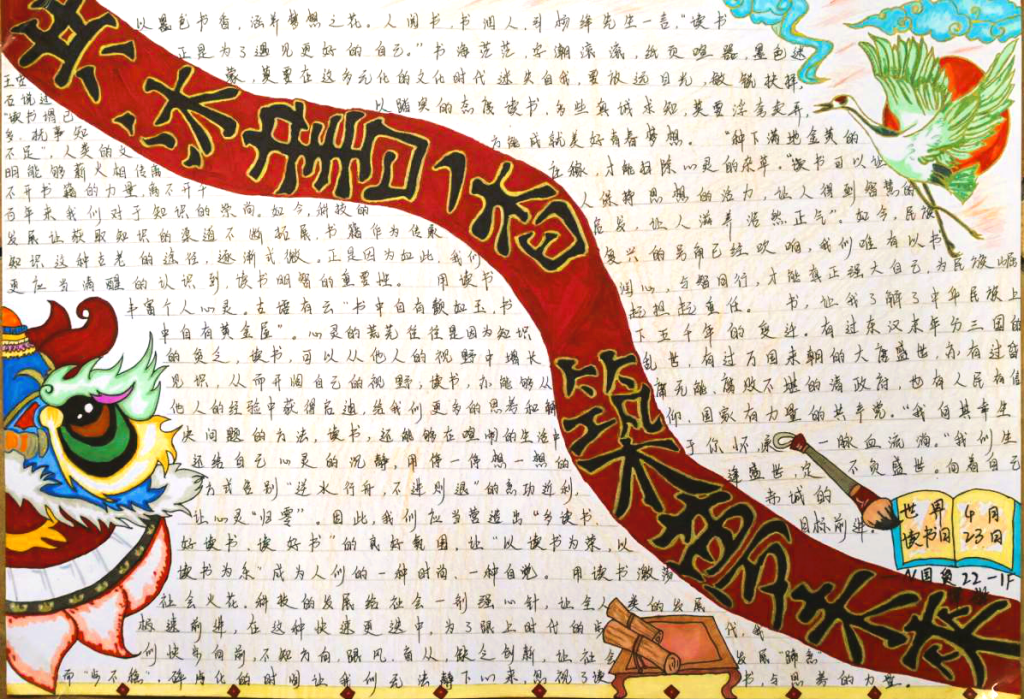 共沐書香 築夢未來
以墨色书香，涵养梦想之花。人阅书，书润人，
先生一言，“读书
正是为了遇见更好的自己。”书海茫茫，
墨色迷
莫要在这多元化的文化时代迷失自我，要放远目光，敏锐抉择，
以踏实的态度读书，多些真诚求知，莫要
方能成就美好青春梦想。 “种下满地金黄的
庄稼，才能扫除心灵的杂草。”读书可以让
人保持思想的活力，让人得到智慧的
启发，让人滋养浩然正气”。如今，民族
复兴的号角已经吹响，我们唯有以书
润心，与智同行，才能真正强大自己，为民族崛
起担起重任。 书，让我了解了中华民族上
下五千年的变迁。有过东汉末年分三国的
乱世，有过万国来朝的大唐盛世，亦有过昏
庸无能、腐败不堪的清政府，也有人民有信
仰，国家有力量的共产党。“我何其幸生
于你怀，承一脉血流淌。”我们生
逢盛世，定不负盛世。向着自己
赤诚的
目标前进。
“读书谓已
多，抚事知
不足”，人类的文
明能够薪火相传离
不开书籍的力量，离不开千
百年来我们对于知识的崇尚。如今，科技的
发展让获取知识的渠道不断拓展，书籍作为传承
知识这种古老的途径，逐渐式微。正是因为如此，我们
更应当清醒的认识到，读书明智的重要性。 用读书
丰富个人心灵。古语有云“书中自有颜如玉，书
中自有黄金屋”。心灵的荒芜往往是因为知识
的匮乏，读书，可以从他人的视野中增长
见识，从而开阔自己的视野，读书，亦能够从
他人的经验中获得启迪，给我们更多的思考和解
决问题的方法，读书，还能够在喧闹的生活中
还给自己心灵的沉静，用停一停想一想的
方式告别“逆水行舟，不进则退”的急功近利，
让心灵“归零”。因此，我们应当营造出“多读书，
好读书，读好书”的良好氛围，让“以读书为荣，以
读书为乐”成为人们的一种时尚、一种自觉。 用读书激荡
社会火花。科技的发展给社会一剂强心针，让全人类的发展
极速前进，在这种快速更迭中，为了跟上时代的步
代，我
们快步向前，不知方向跟风，盲从，缺乏创新，让社会
发展“踌躇
而“步不稳”，碎片化的时间让我们无法静下心来，忽视了读
书与思考的力量。
世界
读书日
4月
23日
22-1F